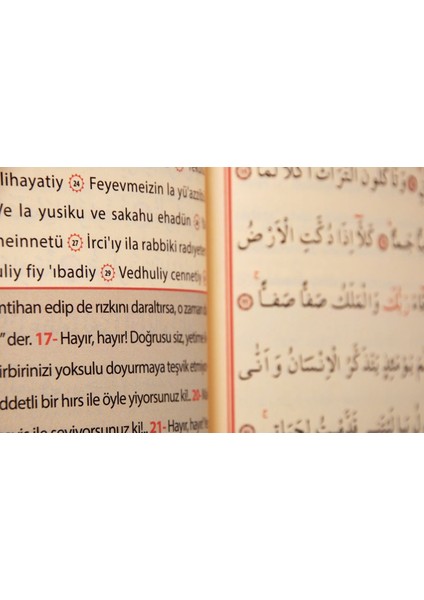 lihayatiy 24 Feyevmeizin la yü'azzib
Ve la yusiku ve sakahu ehadün
neinnetü 27 İrci'ıy ila rabbiki radıyeten
uliy fiy 'ıbadiy 29 Vedhuliy cennetiy
ntihan edip de rızkını daraltırsa, o zaman da
" der. 17- Hayır, hayır! Doğrusu siz, yetime i
irbirinizi yoksulu doyurmaya teşvik etmiyo
ddetli bir hırs ile öyle yiyorsunuz ki!.. 20- Ma
ile seviyorsunuz ki!.. 21- Hayır, hayır!
وَتَأْكُلُونَ التُّرَاثَ اَكْلًا لَمًّا
جَمًّا كَلَّٓا اِذَا دُكَّتِ الْاَرْضُ
رَبُّكَ وَالْمَلَكُ صَفًّا صَفًّا
يَوْمَئِذٍ يَتَذَكَّرُ الْاِنْسَانُ وَاَنّٰى
قَدَّمْتُ لِحَيَاتٖي